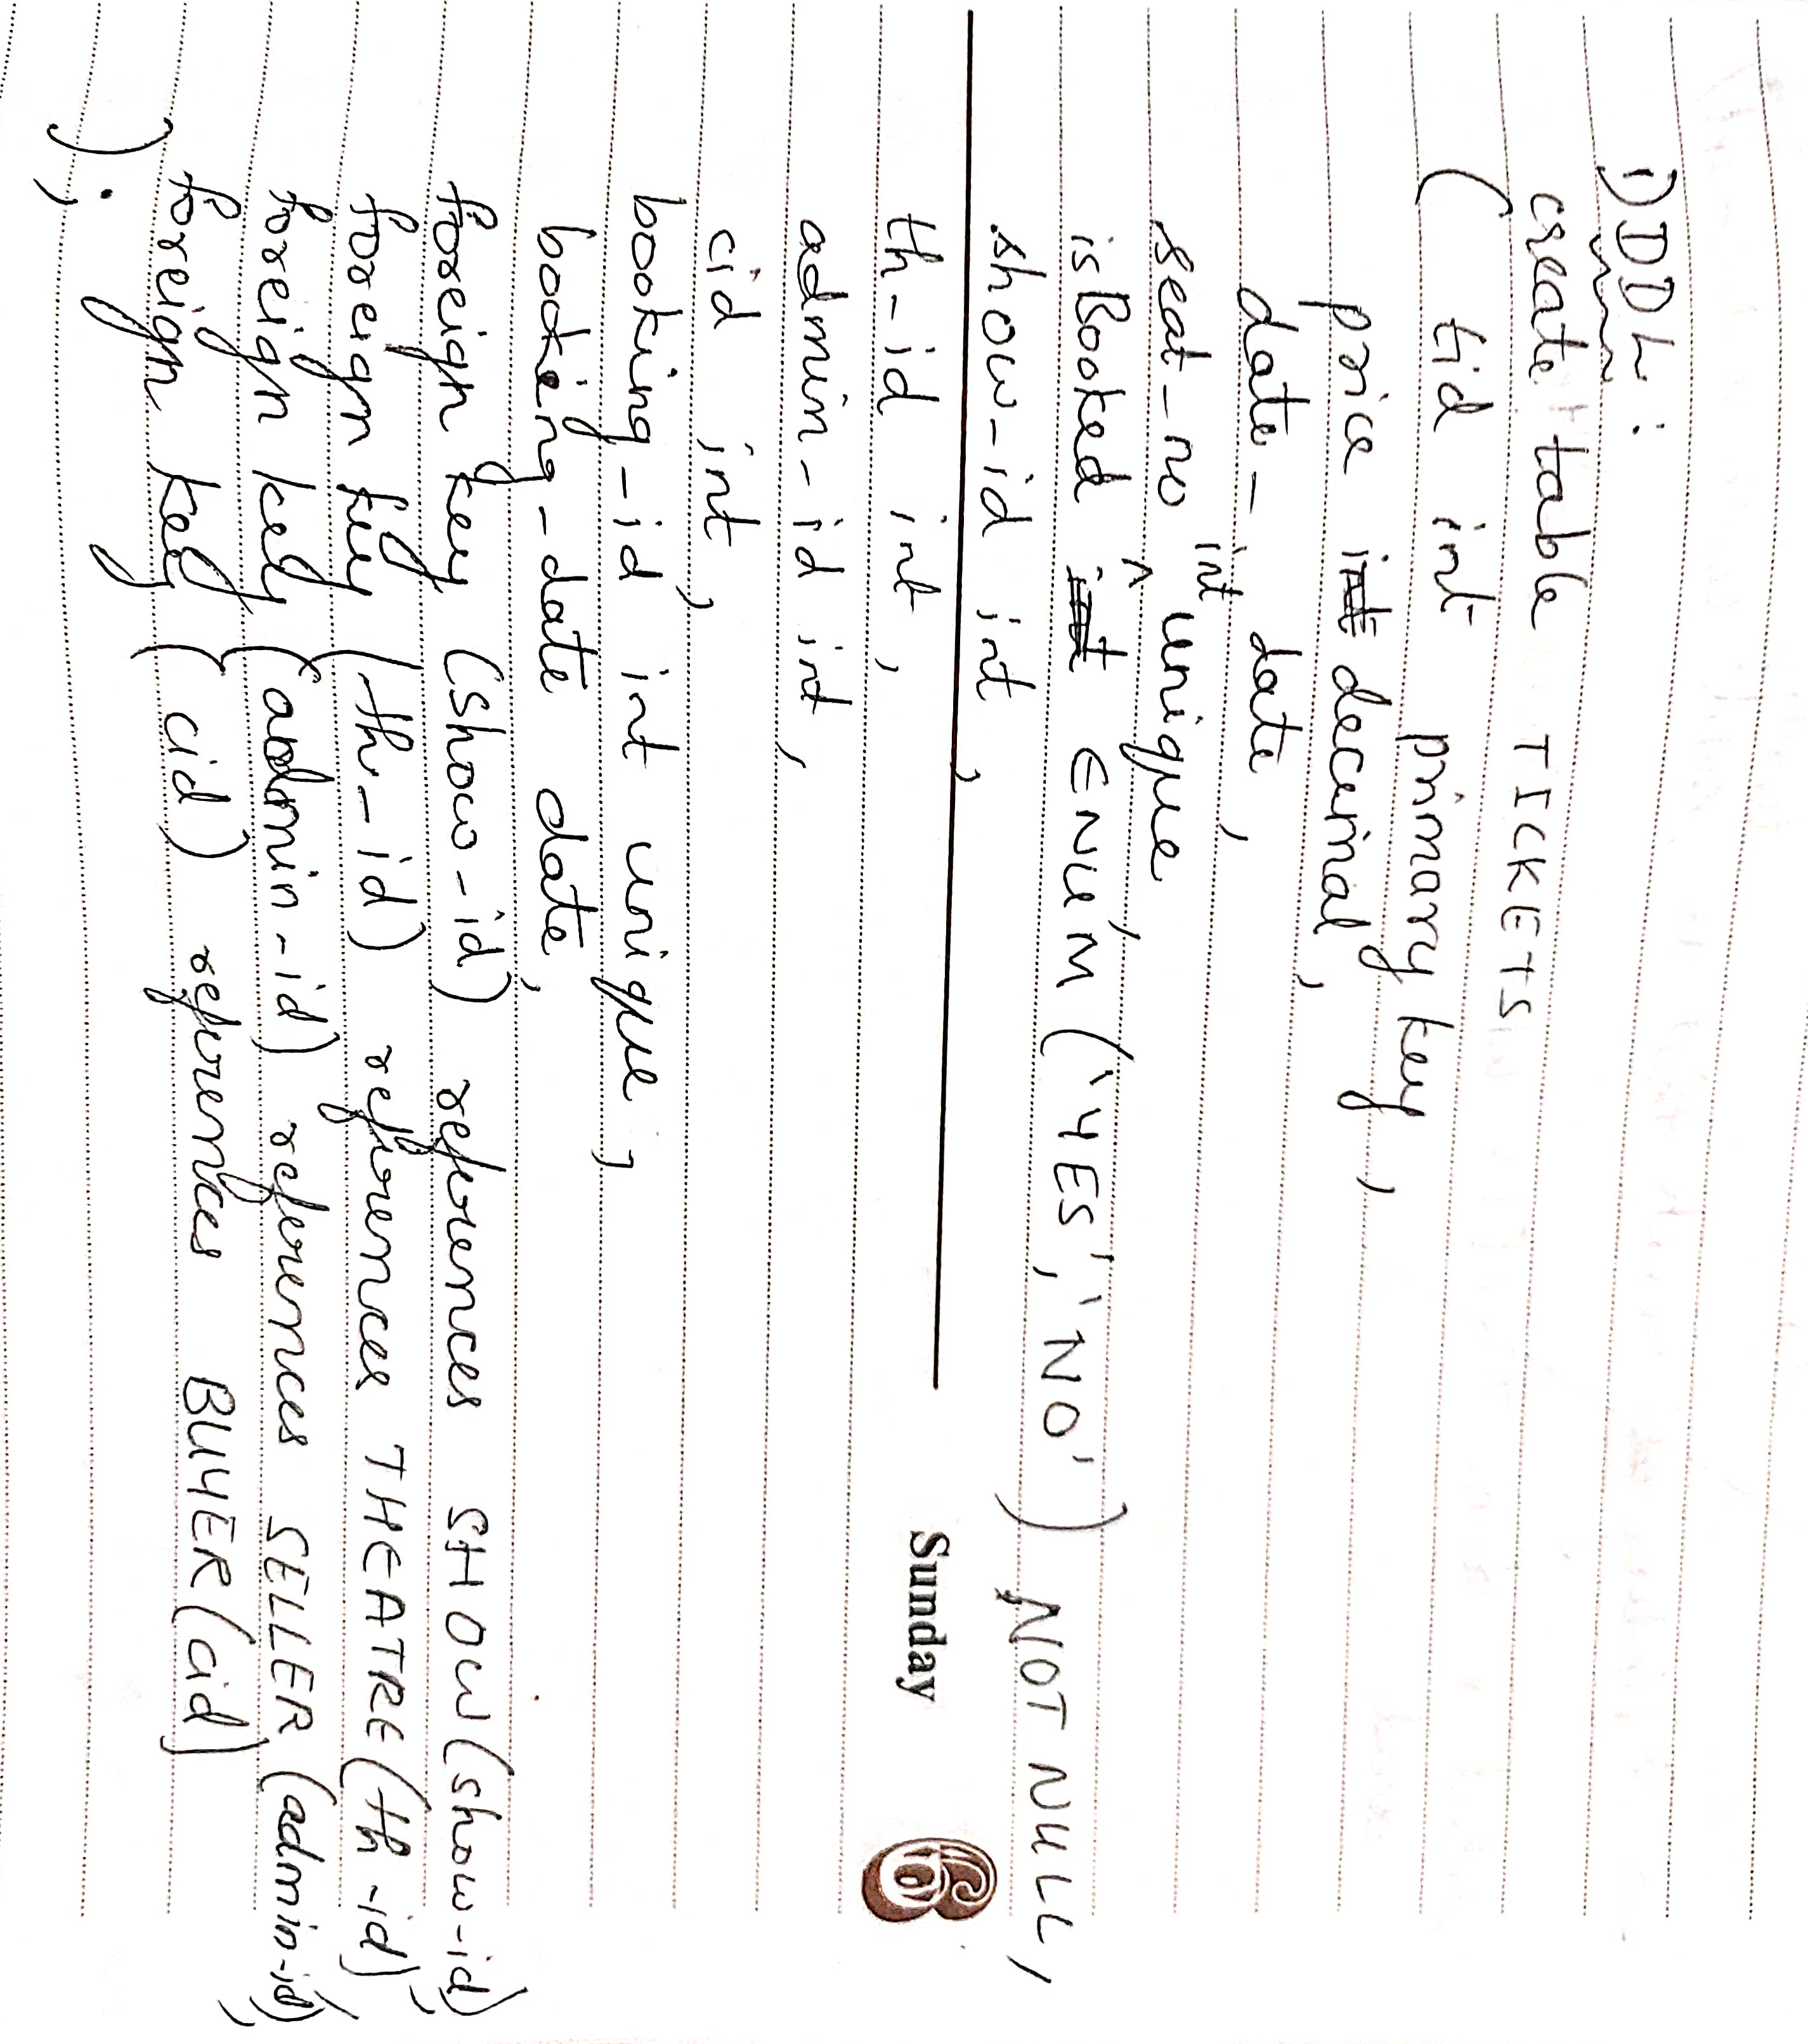 1) DDL :
create table TICKETS
( tid int primary key,
price decimal,
date_ date,
seat_no int unique,
isBooked ENUM ('YES', 'NO') NOT NULL,
show_id int,
Sunday 6
th_id int,
admin_id int,
cid int,
booking_id int unique,
booking_date date,
foreign key (show_id) references SHOW(show_id),
foreign key (th_id) references THEATRE(th_id),
foreign key (admin_id) references SELLER(admin_id),
foreign key (cid) references BUYER(cid)
);